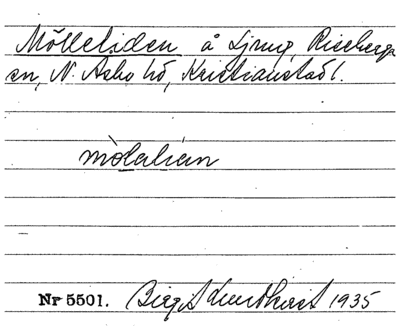 Mölleliden å Ljung, Riseberga
sn, N. Asbo hd, Kristianstads l.
mòlalián
Nr 5501. Birgit Lundkvist 1935